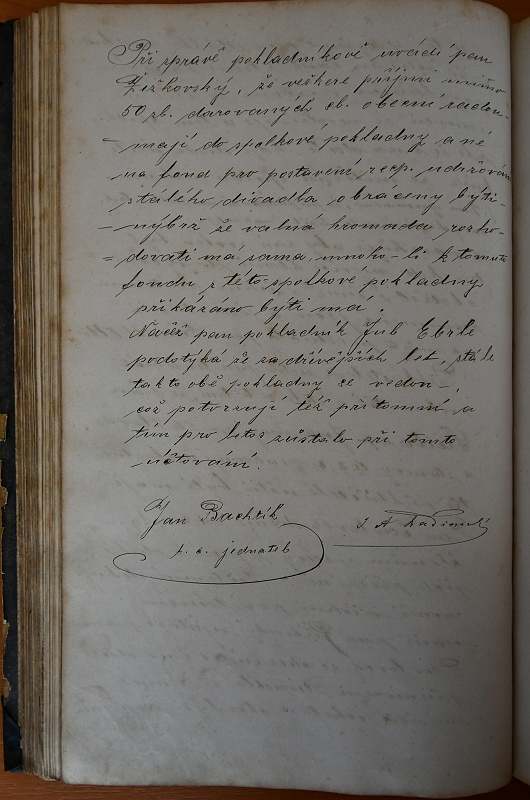 Při správě pokladníkově uvádí pan
Žižkovský, že veškeré příjmi mimo
50 zl. darovaných sl. obecní radou
- mají do spolkové pokladny a né
na fond pro postavení resp. udržování
stálého divadla obráceny býti-
- nýbrž že valná hromada rozho-
= dovati má sama, mnoho-li k tomuto
fondu z této spolkové pokladny
přikázáno býti má.
Načež pan pokladník Jub Eberle
podotýká že za dřívějších let, stále
takto obě pokladny se vedou-,
což potvrzují též přítomní a
tím pro letos zůstalo při tomto
účtování.
Jan Bachtík
t. č. jednatel
J A